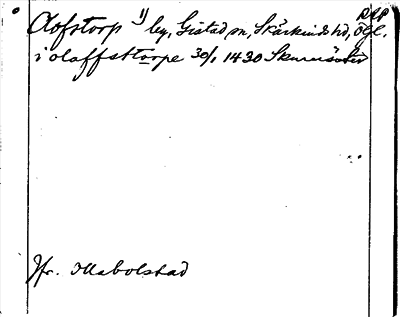 RAP
Olofstorp 1) by, Gistad sn, Skärkinds hd, Ögl.
i olaffsttorpe 30/1 1430
Jfr. Mabolstad